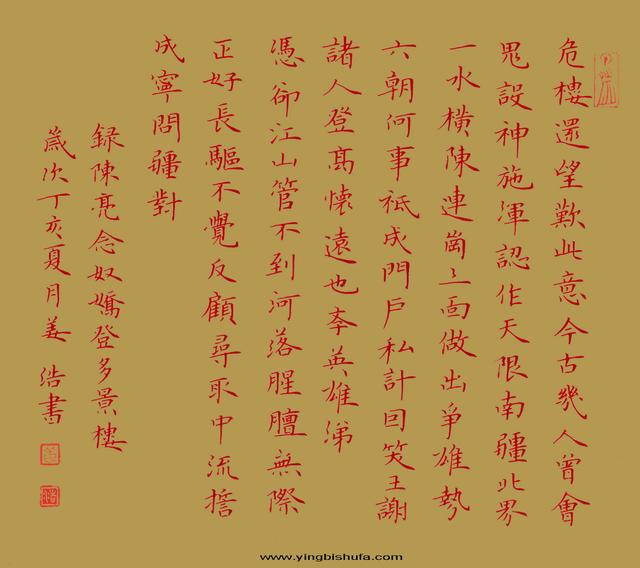 危樓還望歎此意今古幾人曾會
鬼設神施渾認作天限南疆北界
一水橫陳連崗三面做出爭雄勢
六朝何事祗成門戶私計因笑王謝
諸人登高懷遠也斈英雄涕
憑卻江山管不到河落腥膻無際
正好長驅不覺反顧尋取中流擔
成寧問疆對
録陳亮念奴嬌登多景樓
歲次丁亥夏月姜浩書
www.yingbishufa.com